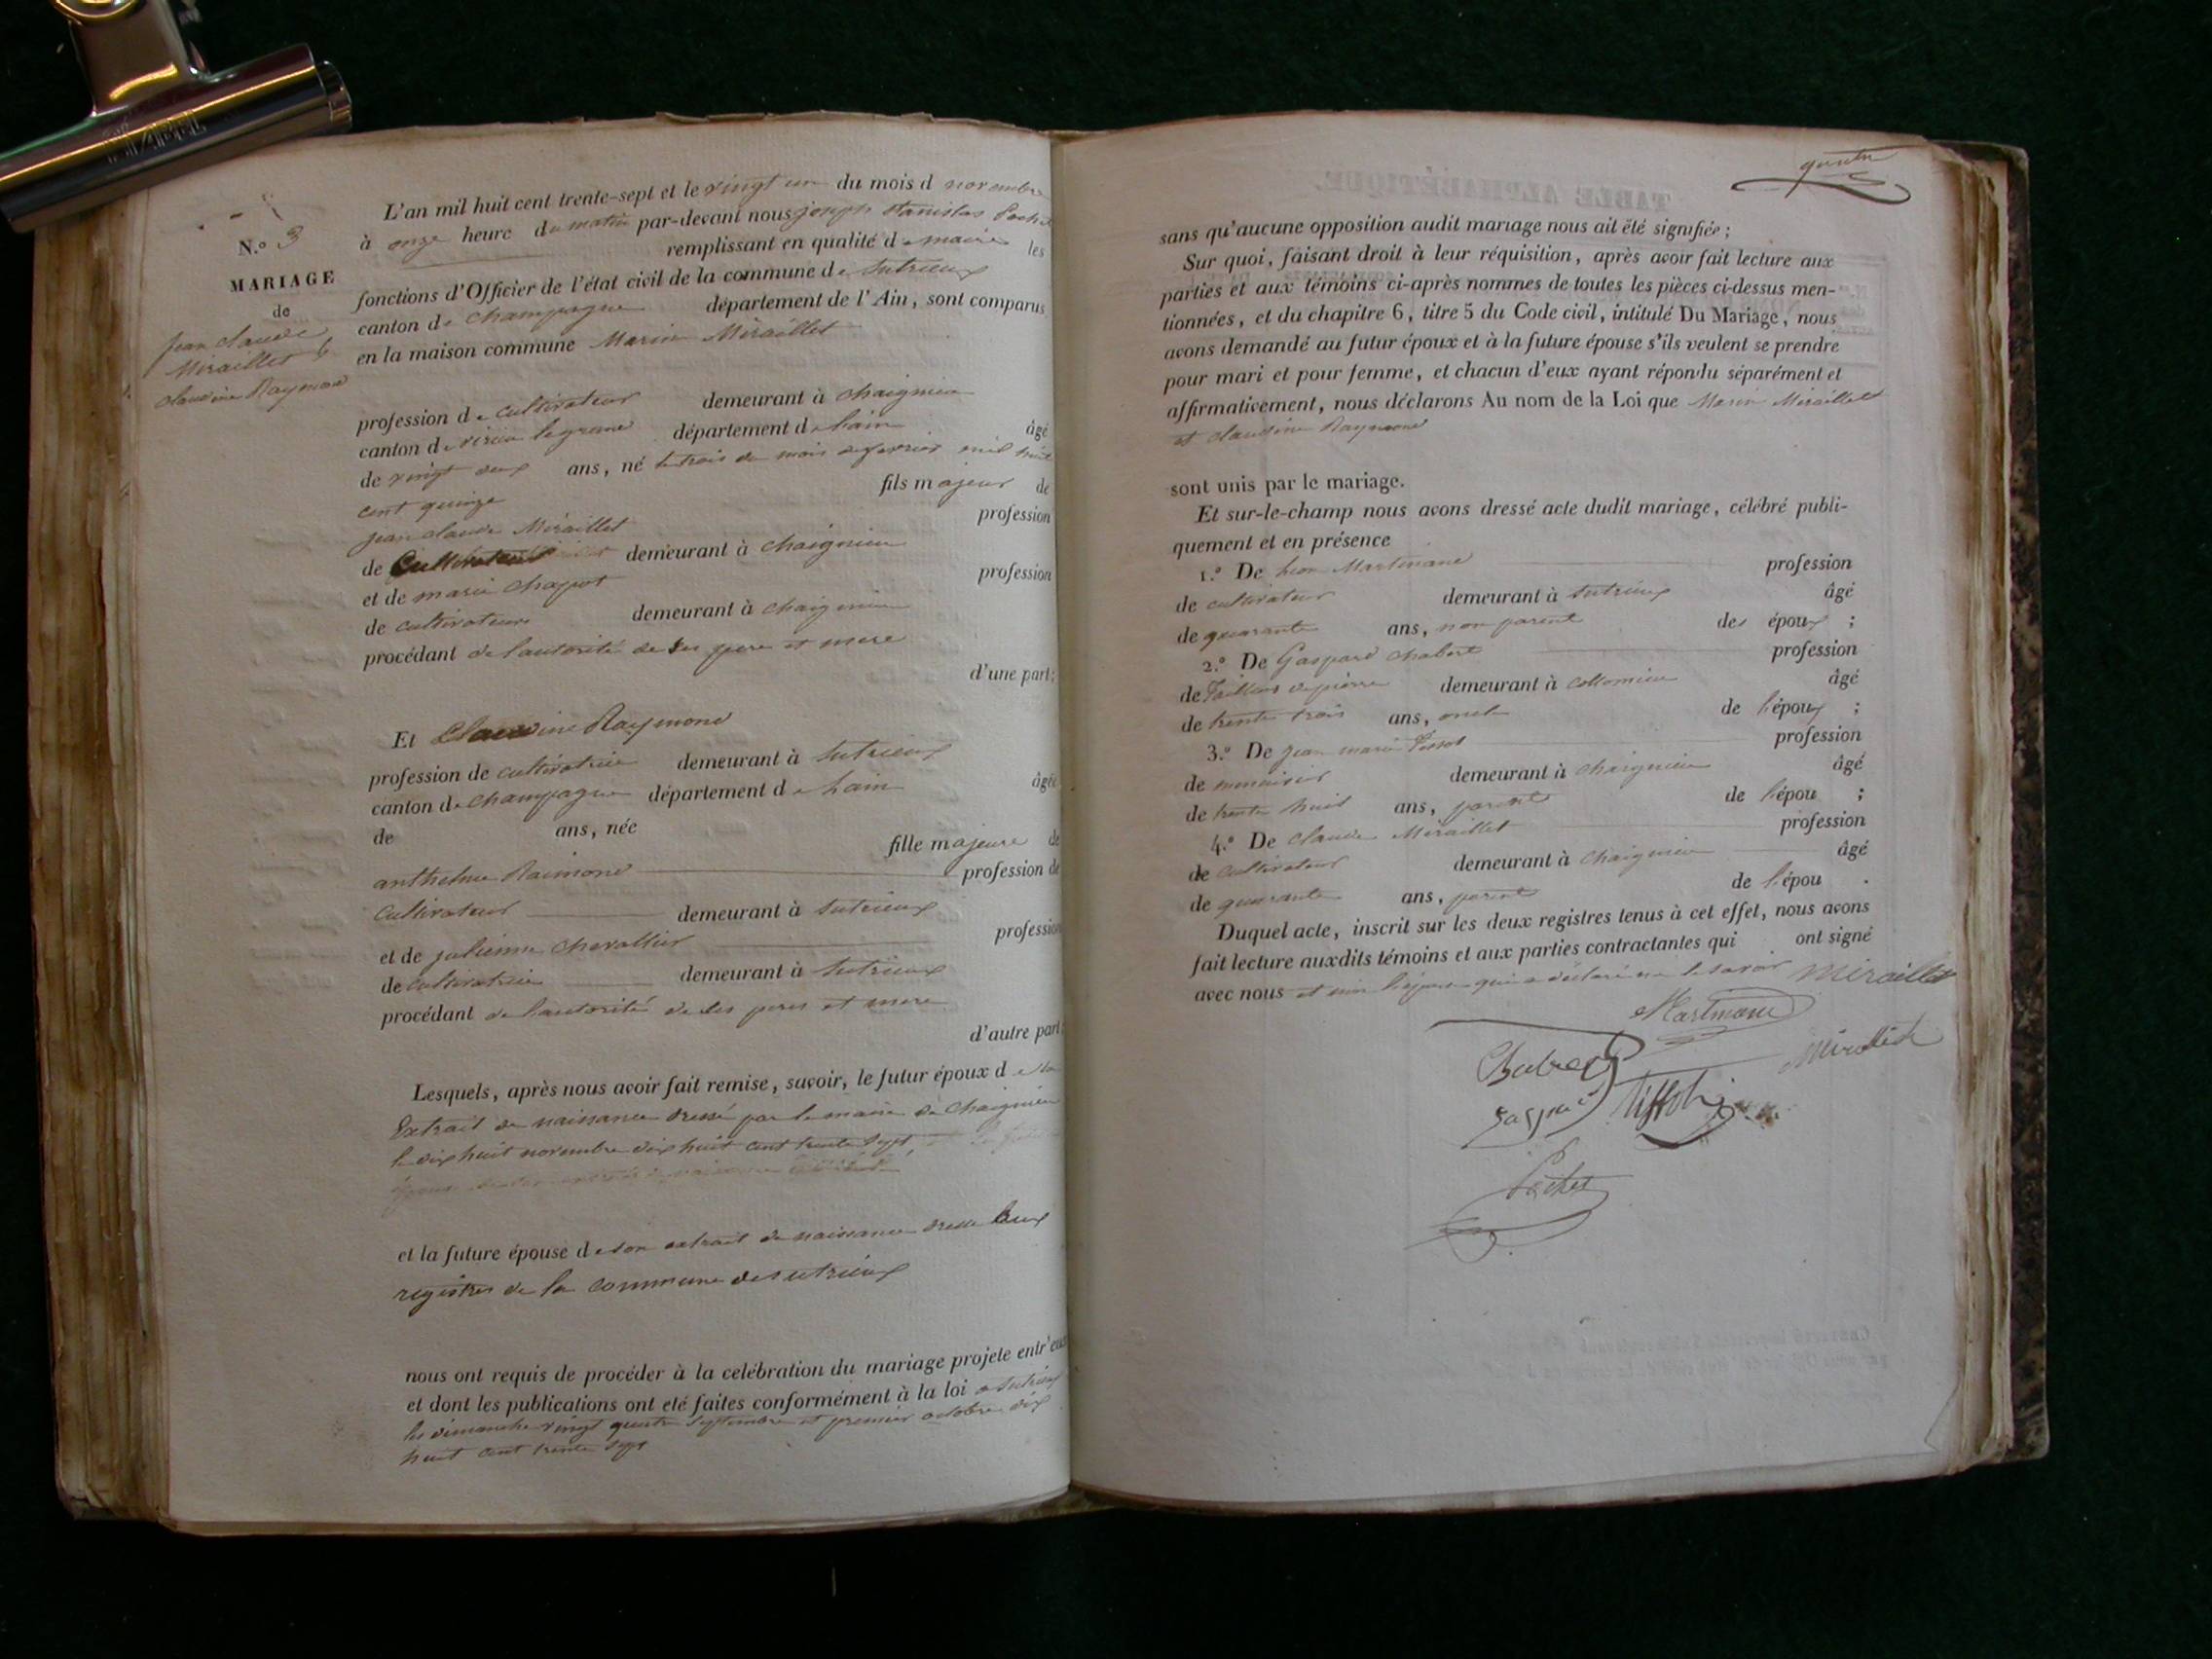 N.o 3
MARIAGE
de
jean claude
Miraillet &
claudine Raymond
L'an mil huit cent trente-sept et le vingt un du mois d novembre
à onze heure du matin par-devant nous joseph Stanislas Pochet
remplissant en qualité de maire les
fonctions d'Officier de l'état civil de la commune de Sutrieux
canton de champagne département de l'Ain, sont comparus
en la maison commune Marin Miraillet
profession de cultivateur demeurant à chaignieu
canton de virieu legrand département de Lain âgé
de vingt deux ans, né le trois du mois de fevrier mil huit
cent quinze fils majeur de
jean claude Miraillet profession
de Cultivateur demeurant à chaignieu
et de marie chapot profession
de cultivateur demeurant à chaignieu
procédant de l'autorité de ses pere et mere
d'une part;
Et Claudine Raymond
profession de cultivatrice demeurant à Sutrieux
canton de champagne département de Lain âgée
de ans, née
fille majeure de
anthelme Raimond profession de
Cultivateur demeurant à Sutrieux
et de julienne chevallier profession
de cultivatrice demeurant à Sutrieux
procédant de l'autorité de ses peres et mere
d'autre part;
Lesquels, après nous avoir fait remise, savoir, le futur époux de
Extrait de naissance dressé par le maire de Chaignieu
le dix huit novembre dix huit cent trente sept,
et la future épouse de son extrait de naissance
registres de la commune de sutrieux
nous ont requis de procéder à la celébration du mariage projeté entr'eux
et dont les publications ont été faites conformément à la loi a Sutrieux
les dimanche vingt quatre septembre et premier octobre dix
huit cent trente sept
quatre
sans qu'aucune opposition audit mariage nous ait été signifiée;
Sur quoi, faisant droit à leur réquisition, après avoir fait lecture aux
parties et aux témoins ci-après nommes de toutes les pièces ci-dessus men-
tionnées, et du chapitre 6, titre 5 du Code civil, intitulé Du Mariage, nous
avons demandé au futur époux et à la future épouse s'ils veulent se prendre
pour mari et pour femme, et chacun d'eux ayant répondu séparément et
affirmativement, nous déclarons Au nom de la Loi que Marin Miraillet
et claudine Raymond
sont unis par le mariage.
Et sur-le-champ nous avons dressé acte dudit mariage, célébré publi-
quement et en présence
1.o De Martinand profession
de cultivateur demeurant à Sutrieux âgé
de quarante ans, non parent des époux;
2.o De Gaspard Chabert profession
de Tailleur de pierre demeurant à Collomieu âgé
de trente trois ans, oncle de l'époux;
3.o De jean marie Tissot profession
de menuisier demeurant à chaignieu âgé
de trente huit ans, parent de l'épou;
4.o De claude Miraillet profession
de Cultivateur demeurant à Chaignieu âgé
de quarante ans, parent de l'épou.
Duquel acte, inscrit sur les deux registres tenus à cet effet, nous avons
fait lecture auxdits témoins et aux parties contractantes qui ont signé
avec nous et non l'épouse qui a déclaré ne le savoir Miraillet
Martinand
Miraillet
Tissot
Pochet